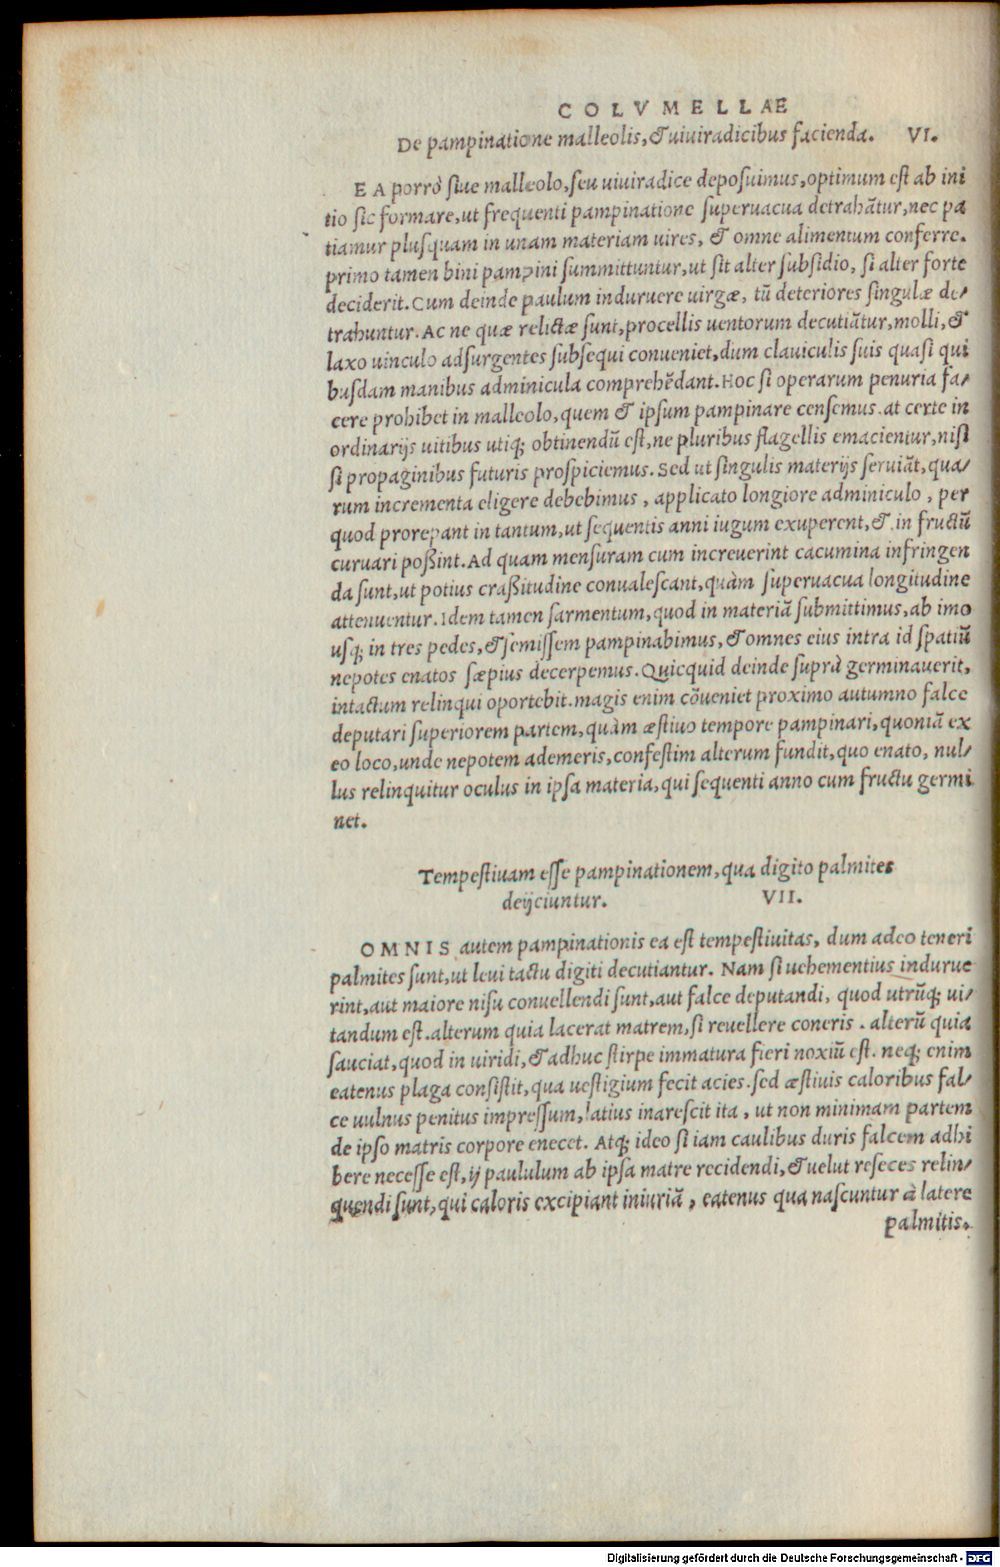 COLVMELLAE
De pampinatione malleolis, & uiuiradicibus facienda. VI.
EA porrò siue malleolo, seu uiuiradice deposuimus, optimum est ab ini
tio sic formare, ut frequenti pampinatione superuacua detrahãtur, nec pa
tiamur plusquam in unam materiam uires, & omne alimentum conferre.
primo tamen bini pampini summittuntur, ut sit alter subsidio, si alter forte
deciderit. Cum deinde paulum induruere uirgæ, tũ deteriores singulæ de/
trahuntur. Ac ne quæ relictæ sunt, procellis uentorum decutiãtur, molli, &
laxo uinculo adsurgentes subsequi conueniet, dum clauiculis suis quasi qui
busdam manibus adminicula comprehẽdant. Hoc si operarum penuria fa/
cere prohibet in malleolo, quem & ipsum pampinare censemus. at certe in
ordinarijs uitibus utiq; obtinendũ est, ne pluribus flagellis emacientur, nisi
si propaginibus futuris prospiciemus. Sed ut singulis materijs seruiãt, qua/
rum incrementa eligere debebimus, applicato longiore adminiculo, per
quod prorepant in tantum, ut sequentis anni iugum exuperent, & in fructũ
curuari poßint. Ad quam mensuram cum increuerint cacumina infringen
da sunt, ut potius craßitudine conualescant, quàm superuacua longitudine
attenuentur. Idem tamen sarmentum, quod in materiã submittimus, ab imo
usq; in tres pedes, & semissem pampinabimus, & omnes eius intra id spatiũ
nepotes enatos sæpius decerpemus. Quicquid deinde suprà germinauerit,
intactum relinqui oportebit. magis enim cõueniet proximo autumno falce
deputari superiorem partem, quàm æstiuo tempore pampinari, quoniã ex
eo loco, unde nepotem ademeris, confestim alterum fundit, quo enato, nul/
lus relinquitur oculus in ipsa materia, qui sequenti anno cum fructu germi
net.
Tempestiuam esse pampinationem, qua digito palmites
deijciuntur. VII.
OMNIS autem pampinationis ea est tempestiuitas, dum adeo teneri
palmites sunt, ut leui tactu digiti decutiantur. Nam si uehementius indurue
rint, aut maiore nisu conuellendi sunt, aut falce deputandi, quod utrũq; ui/
tandum est. alterum quia lacerat matrem, si reuellere coneris. alterũ quia
sauciat, quod in uiridi, & adhuc stirpe immatura fieri noxiũ est. neq; enim
eatenus plaga consistit, qua uestigium fecit acies. sed æstiuis caloribus fal/
ce uulnus penitus impressum, latius inarescit ita, ut non minimam partem
de ipso matris corpore enecet. Atq; ideo si iam caulibus duris falcem adhi
bere necesse est, ij paululum ab ipsa matre recidendi, & uelut reseces relin/
quendi sunt, qui caloris excipiant iniuriã, eatenus qua nascuntur à latere
palmitis.
Digitalisierung gefördert durch die Deutsche Forschungsgemeinschaft - DFG